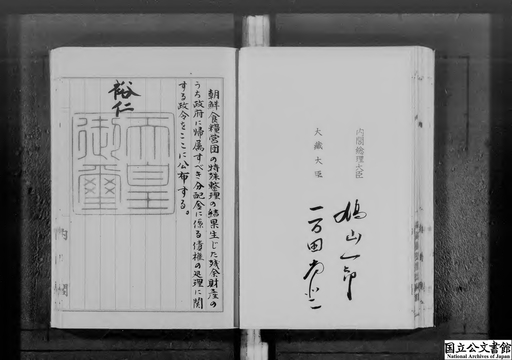 朝鮮食糧営団の特殊整理の結果生じた残余財産の
うち政府に帰属すべき分配金に係る債権の処理に関
する政令をここに公布する。
裕仁
天皇
御璽
内閣総理大臣
大蔵大臣
鳩山一郎
一万田尚登
国立公文書館
National Archives of Japan